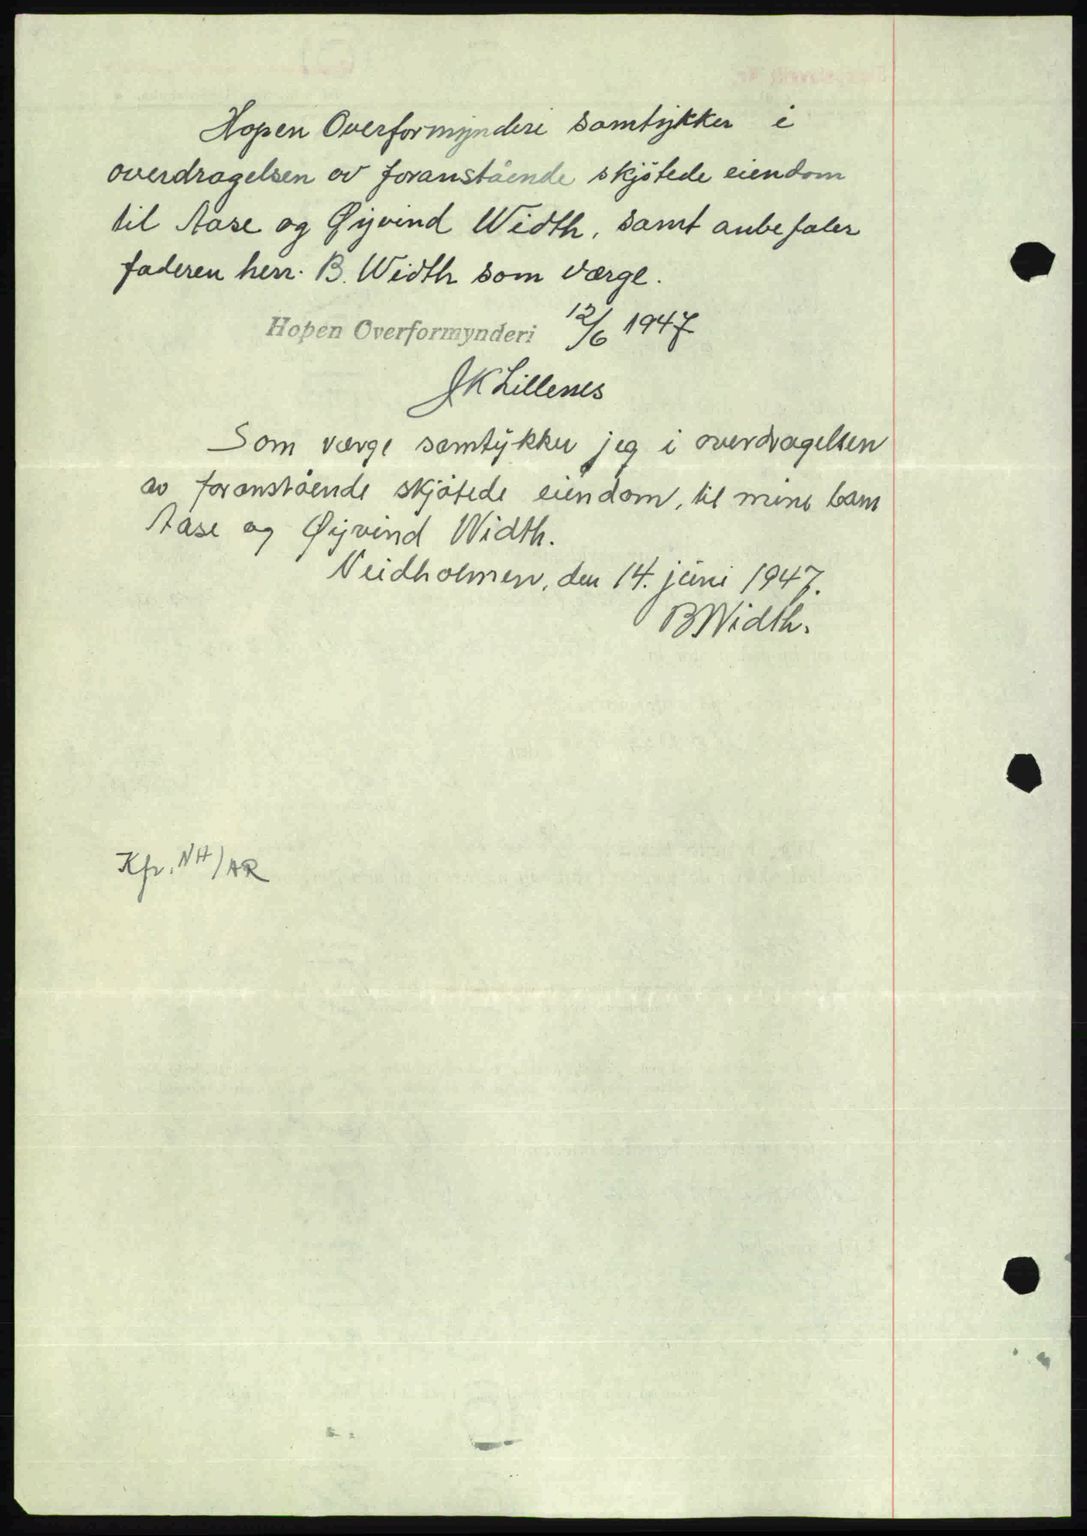 Hopen Overformynderi samtykker i
overdragelsen av foranstående skjøtede eiendom
til Aase og Øyvind Width, samt anbefaler
faderen herr. B. Width som værge.
Hopen Overformynderi 12/6 1947
J K Lillenes
Som værge samtykker jeg i overdragelsen
av foranstående skjøtede eiendom, til mine barn
Aase og Øyvind Width.
Neidholmen, den 14. juni 1947.
B Width.
Kfr. NH/AR